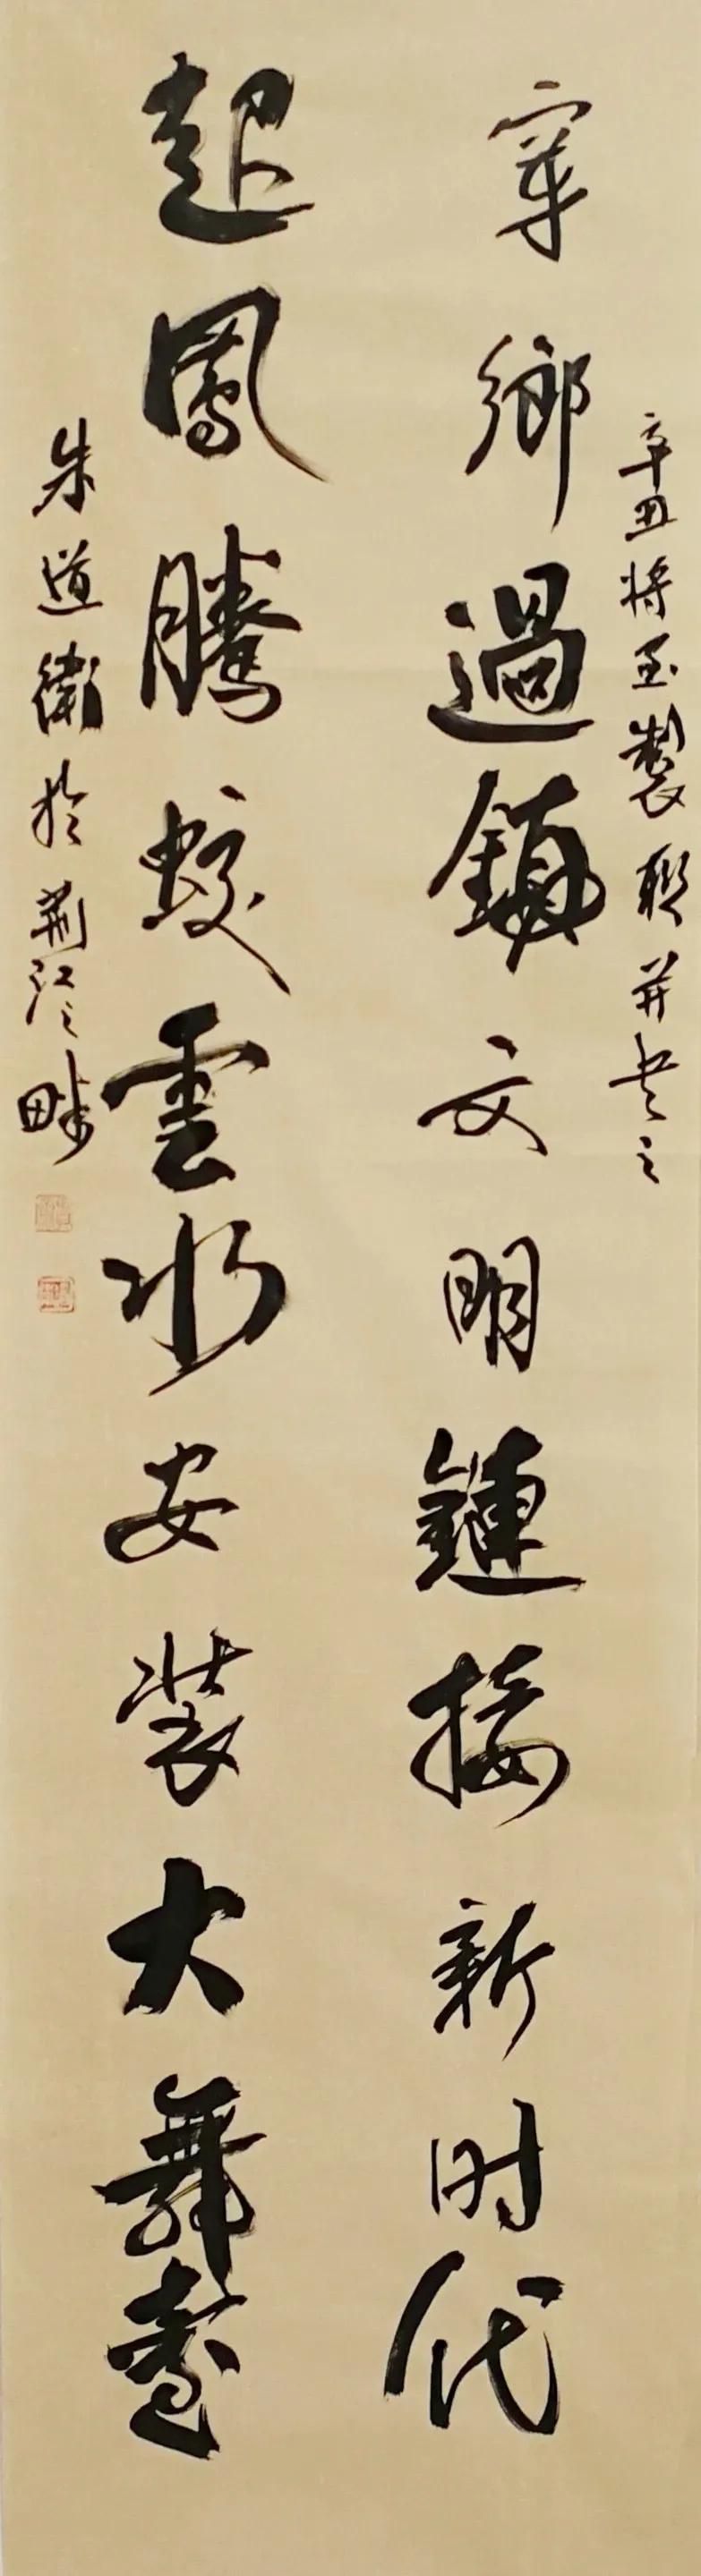 辛丑将至製联并书之
穿鄉過鎮文明鏈接新时代
起鳳騰蛟雲水安装大舞臺
朱道衛於荆江之畔